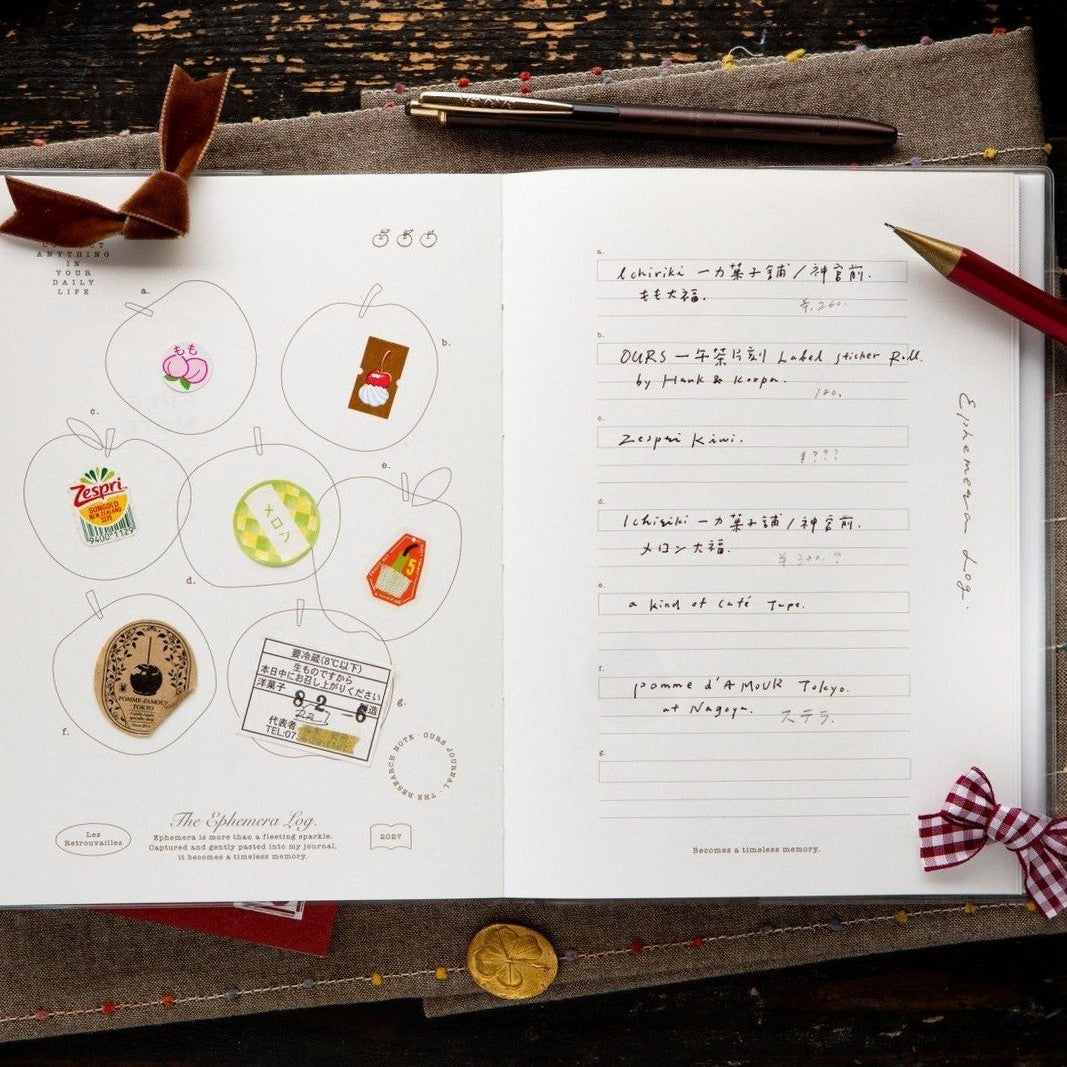 ANYTHING
IN
YOUR
DAILY
LIFE
a.
もも
b.
c.
Zespri
SUNGOLD
NEW ZEALAND
9400 1129
d.
メロン
e.
5
f.
POMME-D'AMOUR
TOKYO
g.
要冷蔵(8℃以下)
生ものですから
本日中にお召し上がりください
洋菓子
8 2 -6 製造
代表者
TEL:07
THE RESEARCH NOTE · OURS JOURNAL ·
The Ephemera Log.
Ephemera is more than a fleeting sparkle.
Captured and gently pasted into my journal,
it becomes a timeless memory.
Les
Retrouvailles
2027
a.
Ichiriki 一力菓子舗 / 神宮前.
もも大福.
¥.260.
b.
OURS 一午茶片刻 Label Sticker Roll.
by Hank & Koopa.
180.
c.
Zespri Kiwi.
¥???
d.
Ichiriki 一力菓子舗 / 神宮前.
メロン大福.
¥300.?
e.
a kind of Café Tape.
f.
pomme d'AMOUR Tokyo.
at Nagoya.
ステラ.
g.
Becomes a timeless memory.
Ephemera Log.